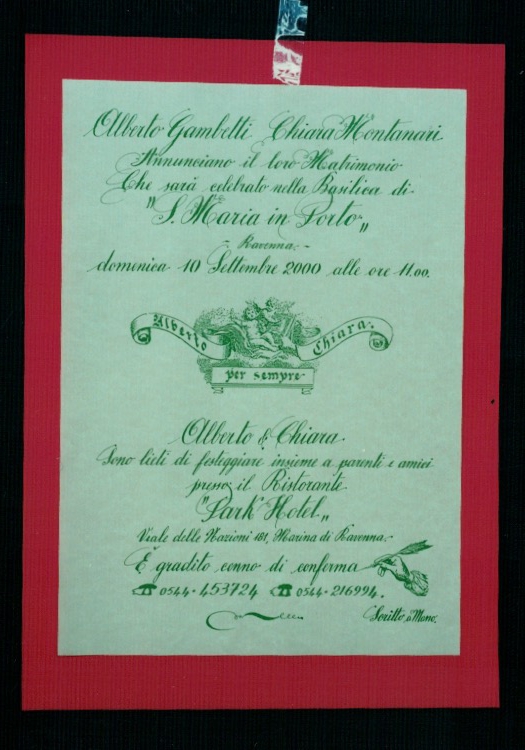 Alberto Gambetti Chiara Montanari
Annunciano il loro Matrimonio
Che sarà celebrato nella Basilica di
"S. Maria in Porto"
~ Ravenna ~
domenica 10 Settembre 2000 alle ore 11.00
Alberto Chiara
per sempre
Alberto & Chiara
Sono lieti di festeggiare insieme a parenti e amici
presso il Ristorante
"Park Hotel"
Viale delle Nazioni 181, Marina di Ravenna
È gradito cenno di conferma
☎ 0544-453724 ☎ 0544-216994.
Scritto a Mano.